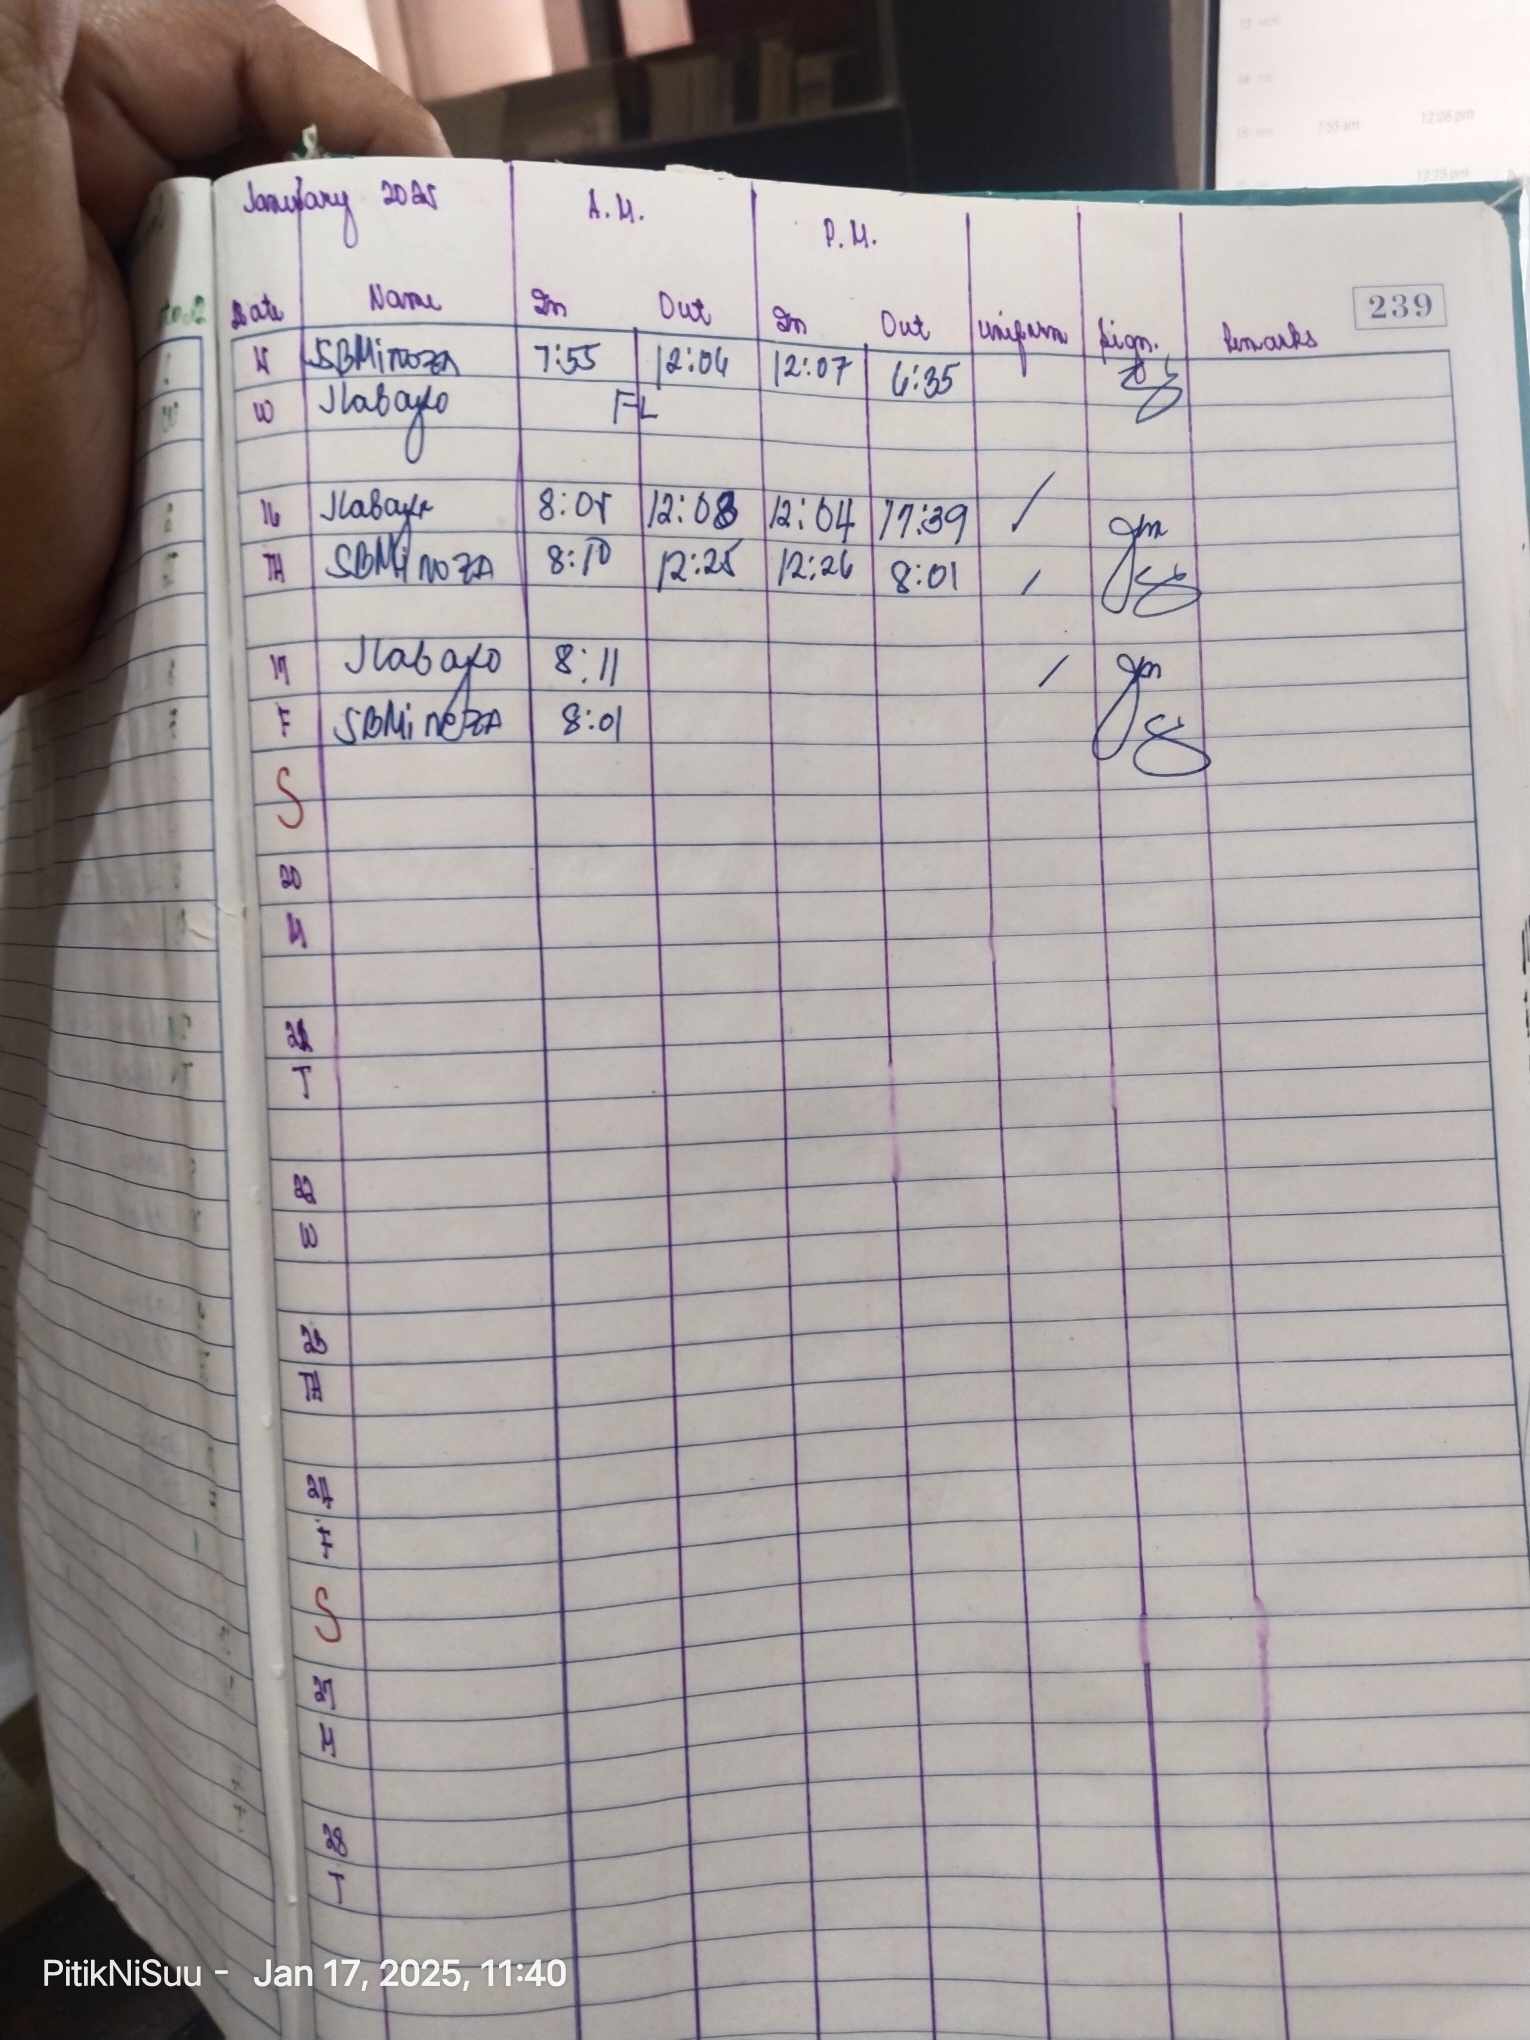 January 2025 A.M. P.M.
239
Date Name In Out In Out Uniform Sign. Remarks
15 SBMinoza 7:55 12:06 12:07 6:35
W Jlabayto FL
16 8:05 12:08 12:04 17:39 /
TH SBMinoza 8:10 12:25 12:26 8:01 /
17 Jlabayo 8:11 /
F SBMinoza 8:01
S
20
M
21
T
22
W
23
TH
24
F
S
27
M
28
T
PitikNiSuu - Jan 17, 2025, 11:40
7:55 am 12:06 pm